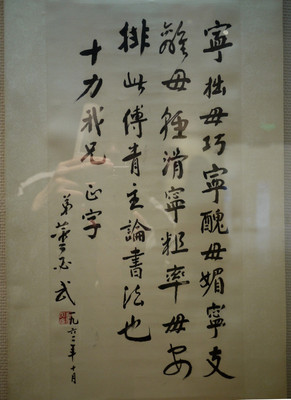 寧拙毋巧寧醜毋媚寧支
離毋輕滑寧粗率毋安
排此傅青主論書法也
十力我兄 正字
弟董必武
一九六二年十月